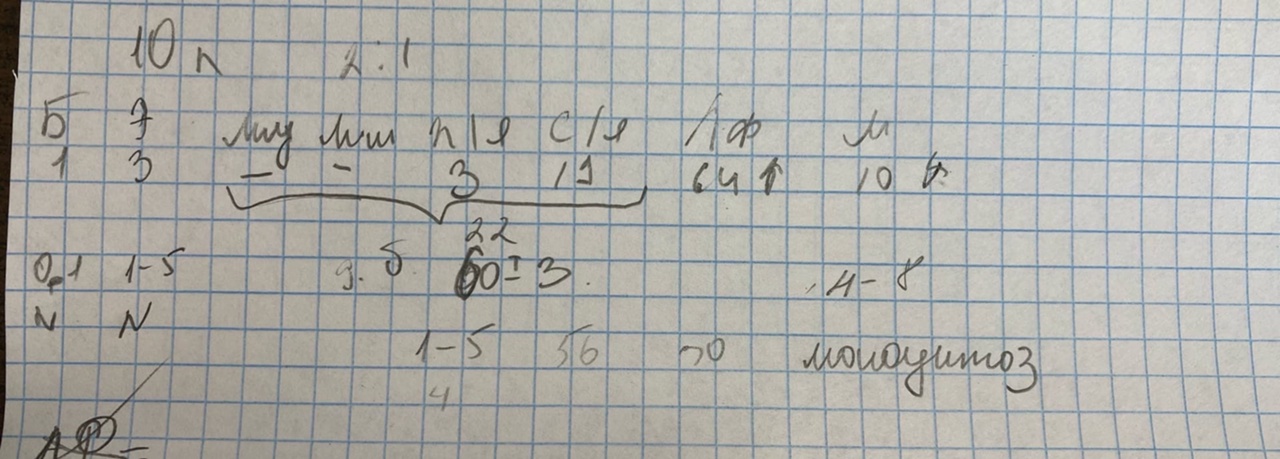 10 л 2:1
Б Э миу мш п/я с/я Лф м
1 3 – – 3 19 64↑ 10↑
22
0-1 1-5 д.б. 60±3. 4-8
N N
1-5 56 30 моноцитоз
4